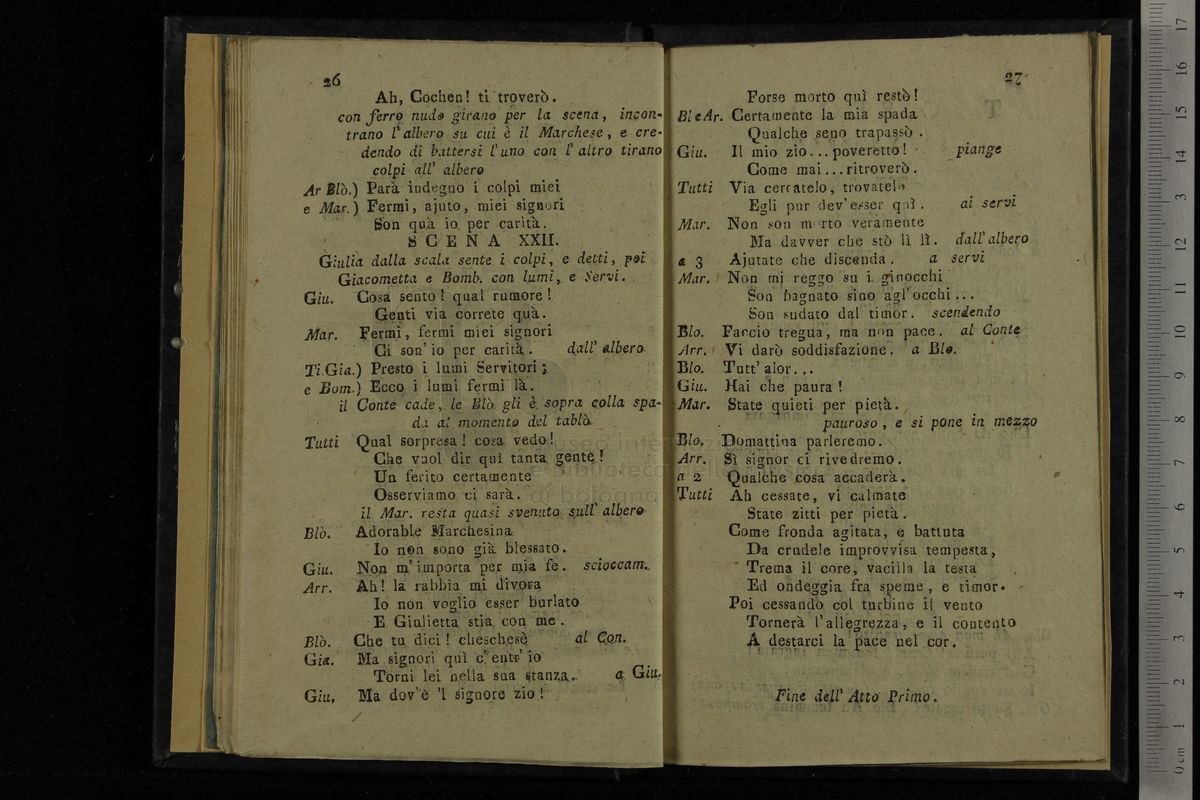 26
Ah, Cochen! ti troverò.
con ferro nudo girano per la scena, incon-
trano l'albero su cui è il Marchese, e cre-
dendo di battersi l'uno con l'altro tirano
colpi all' albero
Ar Blò.) Parà indegno i colpi miei
e Mar.) Fermi, ajuto, miei signori
Son quà io per carità.
SCENA XXII.
Giulia dalla scala sente i colpi, e detti, poi
Giacometta e Bomb. con lumi, e Servi.
Giu. Cosa sento! qual rumore!
Genti via correte quà.
Mar. Fermi, fermi miei signori
Ci son' io per carità. dall' albero
Ti.Gia.) Presto i lumi Servitori;
e Bom.) Ecco i lumi fermi là.
il Conte cade, le Blò gli è sopra colla spa-
da al momento del tablò
Tutti Qual sorpresa! cosa vedo!
Che vuol dir quì tanta gente!
Un ferito certamente
Osserviamo ci sarà.
il Mar. resta quasi svenuto sull' albero
Blò. Adorable Marchesina
Io non sono già blessato.
Giu. Non m'importa per mia fe. scioccam.
Arr. Ah! la rabbia mi divora
Io non voglio esser burlato
E Giulietta stia con me.
Blò. Che tu dici! cheschesè al Con.
Gia. Ma signori quì c'entr' io
Torni lei nella sua stanza. a Giu.
Giu. Ma dov'è 'l signore zio!
27
Forse morto quì restò!
Bl e Ar. Certamente la mia spada
Qualche seno trapassò.
Giu. Il mio zio... poveretto! piange
Come mai... ritroverò.
Tutti Via cercatelo, trovatelo
Egli pur dev'esser quì. ai servi
Mar. Non son morto veramente
Ma davver che stò lì lì. dall' albero
a 3 Ajutate che discenda. a servi
Mar. Non mi reggo su i ginocchi
Son bagnato sino agl'occhi...
Son sudato dal timor. scendendo
Blo. Farcio tregua, ma non pace. al Conte
Arr. Vi darò soddisfazione. a Blo.
Blo. Tutt' alor...
Giu. Hai che paura!
Mar. State quieti per pietà.
pauroso, e si pone in mezzo
Blo. Domattina parleremo.
Arr. Sì signor ci rivedremo.
a 2 Qualche cosa accaderà.
Tutti Ah cessate, vi calmate
State zitti per pietà.
Come fronda agitata, e battuta
Da crudele improvvisa tempesta,
Trema il core, vacilla la testa
Ed ondeggia fra speme, e timor.
Poi cessando col turbine il vento
Tornerà l'allegrezza, e il contento
A destarci la pace nel cor.
Fine dell' Atto Primo.
0 cm 1 2 3 4 5 6 7 8 9 10 11 12 13 14 15 16 17